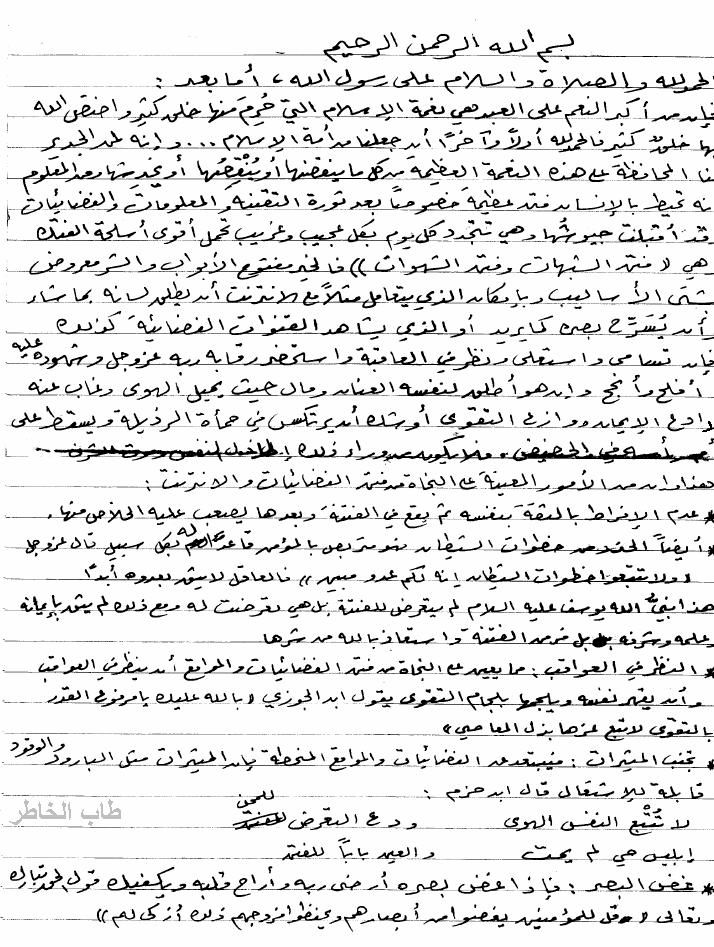 بسم الله الرحمن الرحيم
الحمد لله والصلاة والسلام على رسول الله ، أما بعد :
فإن من أكبر النعم على العبد هي نعمة الإسلام التي حُرِمَ منها خلق كثير واختص الله
بها خلقٌ كثير فالحمد لله أولاً وآخرًا أن جعلنا من أمة الإسلام ... وإنه لمن الجدير
بنا المحافظة على هذه النعمة العظيمة من كل ما ينقضها أو يُنْقِصُها أو يخدشها ومن المعلوم
أنه تحيط بالإنسان فتن عظيمة خصوصاً بعد ثورة التقنية والمعلومات والفضائيات
وقد أقبلت جيوشُها وهي تتجدد كل يوم بكل عجيب وغريب تحمل أقوى أسلحة الفتك
وهي (( فتن الشبهات وفتن الشهوات )) فالخير مفتوح الأبواب والشر معروض
بشتى الأساليب وبإمكان الذي يتعامل مثلاً مع الانترنت أن يطلق لسانه بما شاء
وأن يُسَرِّح بصره كما يريد أو الذي يشاهد القنوات الفضائية كذلك
فإن تسامى واستعلى ونظر في العاقبة واستحضر رقابة ربه عز وجل وشهوده عليه
أفلح وأنجح وإن هو أطلق لنفسه العنان ومال حيث يميل الهوى وغاب عنه
وازع الإيمان ووازع التقوى أوشك أن يرتكس في حمأة الرذيلة ويسقط على
هذا وإن من الأمور المعينة على النجاة من فتن الفضائيات والانترنت :
* عدم الإفراط بالثقة بنفسه ثم يقع في الفتنة وبعدها يصعب عليه الخلاص منها .
* أيضاً الحذر من خطوات الشيطان فهو متربص بالمؤمن قاعدٌ له بكل سبيل قال عز وجل
(( ولا تتبعوا خطوات الشيطان إنه لكم عدو مبين )) فالعاقل لا يثق بعدوه أبدًا
هذا نبيُّ الله يوسف عليه السلام لم يتعرض للفتنة بل هي تعرضت له ومع ذلك لم يثق بإيمانه
وعلمه وشرفه بل فر من الفتنة واستعاذ بالله من شرها
* النظر في العواقب : مما يعين على النجاة من فتن الفضائيات والمواقع أن ينظر في العواقب
وأن يقهر نفسه ويلجمها بلجام التقوى يقول ابن الجوزي (( بالله عليك يا مرفوع القدر
بالتقوى لا تبع عزها بذل المعاصي ))
* تجنب المثيرات : فيبتعد عن الفضائيات والمواقع المنحطة فإن المثيرات مثل البارود والوقود
قابلة للاشتعال قال ابن حزم :
لا تُتْبِع النفس الهوى ودع التعرض للمحن
إبليس حي لم يمت والعين باباً للفتن
* غض البصر : فإذا غض بصره أرضى ربه وأراح قلبه ويكفيك قول الحق تبارك
وتعالى (( قل للمؤمنين يغضوا من أبصارهم ويحفظوا فروجهم ذلك أزكى لهم ))
طاب الخاطر